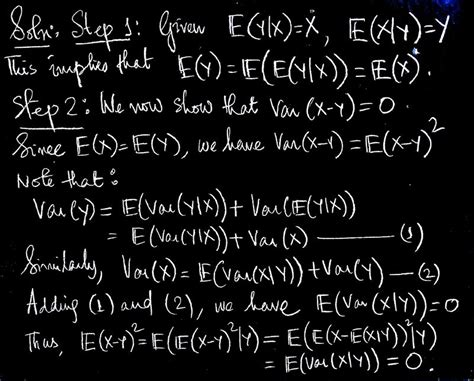 Soln: Step 1: Given E(Y|X)=X, E(X|Y)=Y
This implies that E(Y)=E(E(Y|X))=E(X).
Step 2: We now show that Var(X-Y)=0.
Since E(X)=E(Y), we have Var(X-Y)=E(X-Y)²
Note that:
Var(Y)=E(Var(Y|X))+Var(E(Y|X))
=E(Var(Y|X))+Var(X) —— (1)
Similarly, Var(X)=E(Var(X|Y))+Var(Y) — (2)
Adding (1) and (2), we have E(Var(X|Y))=0
Thus, E(X-Y)²=E(E(X-Y)²|Y)=E(E(X-E(X|Y))²|Y)
=E(Var(X|Y))=0.